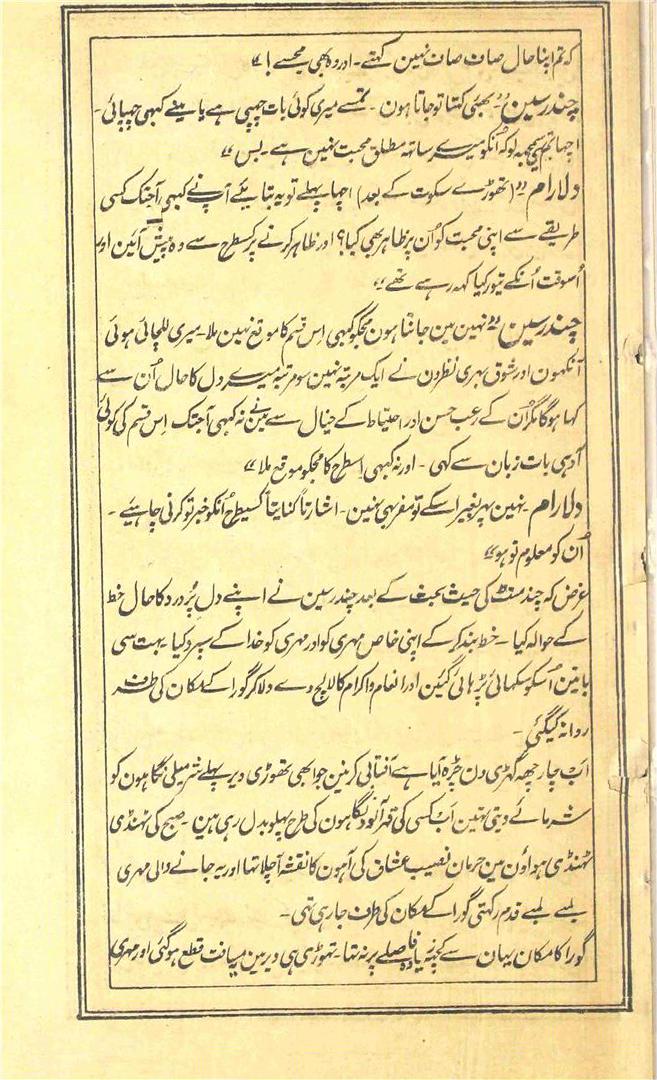 کہ تم اپنا حال صاف صاف نہین کہتے۔ اور وہ بھی مجھسے!“
چندرسین ”بھئی کہتا تو جاتا ہون۔ تمسے میری کوئی بات چھپی ہے یا مینے کبھی چھپائی۔
اچھا تم یہی سمجھ لو کہ اُنکو میرے ساتھ مطلق محبت نہین ہے۔ بس“
دلارام ”(تھوڑے سکوت کے بعد) اچھا پہلے تو یہ بتائیے آپ نے کبھی آجتک کسی
طریقے سے اپنی محبت کو اُن پر ظاہر بھی کیا؟ اور ظاہر کرنے پر کسطرح سے وہ پیش آئین اور
اُسوقت اُنکے تیور کیا کہہ رہے تھے“
چندرسین ”نہین مین جانتا ہون مجکو کبھی اِس قسم کا موقع نہین ملا۔ میری للچائی ہوئی
آنکھون اور شوق بھری نظرون نے ایک مرتبہ نہین سو مرتبہ میرے دل کا حال اُن سے
کہا ہوگا مگر اُن کے رعب حسن اور احتیاط کے خیال سے مین نے نہ کبھی آجتک اِس قسم کی کوئی
آدہی بات زبان سے کہی۔ اور نہ کبھی اسطرح کا مجکو موقع ملا“
دلارام۔ نہین پہر بغیر اسکے تو مفر ہی نہین۔ اشارتاً کنایتاً کسیطرح اُنکو خبر تو کرنی چاہیئے۔
اُن کو معلوم تو ہو“
غرض کہ چند منٹ کی حیث بحث کے بعد چندرسین نے اپنے دل پُر درد کا حال خط
کے حوالہ کیا۔ خط بند کر کے اپنی خاص مہری کو اور مہری کو خدا کے سپرد کیا۔ بہت سی
باتین اُسکو سکھائی پڑہائی گئین اور انعام و اکرام کا لالچ دے دلا کر گورا کے مکان کی طرف
روانہ کیگئی۔
اب چار چھہ گھڑی دن چڑہ آیا ہے آفتابی کرنین جو ابھی تھوڑی دیر پہلے شرمیلی نگاہون کو
شرمائے دیتی تہین اب کسی کی قہر آلود نگاہون کی طرح پہلو بدل رہی ہین۔ صبح کی ٹھنڈی
ٹھنڈی ہواؤن مین حرمان نصیب عشاق کی آہون کا نقشہ آچلا تھا اور یہ جانے والی مہری
لمبے لمبے قدم رکھتی گورا کے مکان کی طرف جا رہی تہی۔
گورا کا مکان یہان سے کچھہ زیادہ فاصلے پر نہ تھا۔ تھوڑی ہی دیر مین مسافت قطع ہوگئی اور مہری